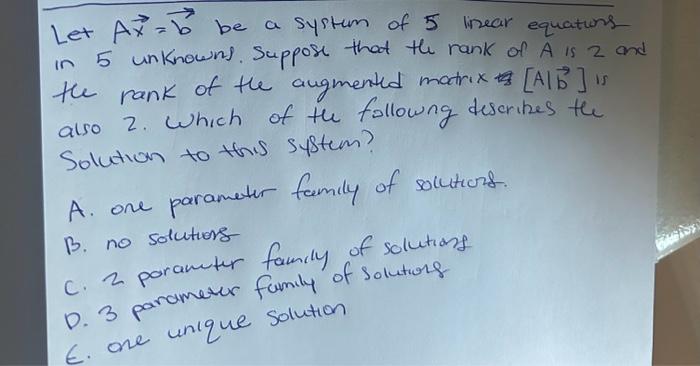 Let Ax⃗ = b⃗ be a system of 5 linear equations
in 5 unknowns. Suppose that the rank of A is 2 and
the rank of the augmented matrix [A|b⃗] is
also 2. Which of the following describes the
Solution to this system?
A. one parameter family of solutions.
B. no solutions
C. 2 parameter family of solutions
D. 3 parameter family of solutions
E. one unique solution